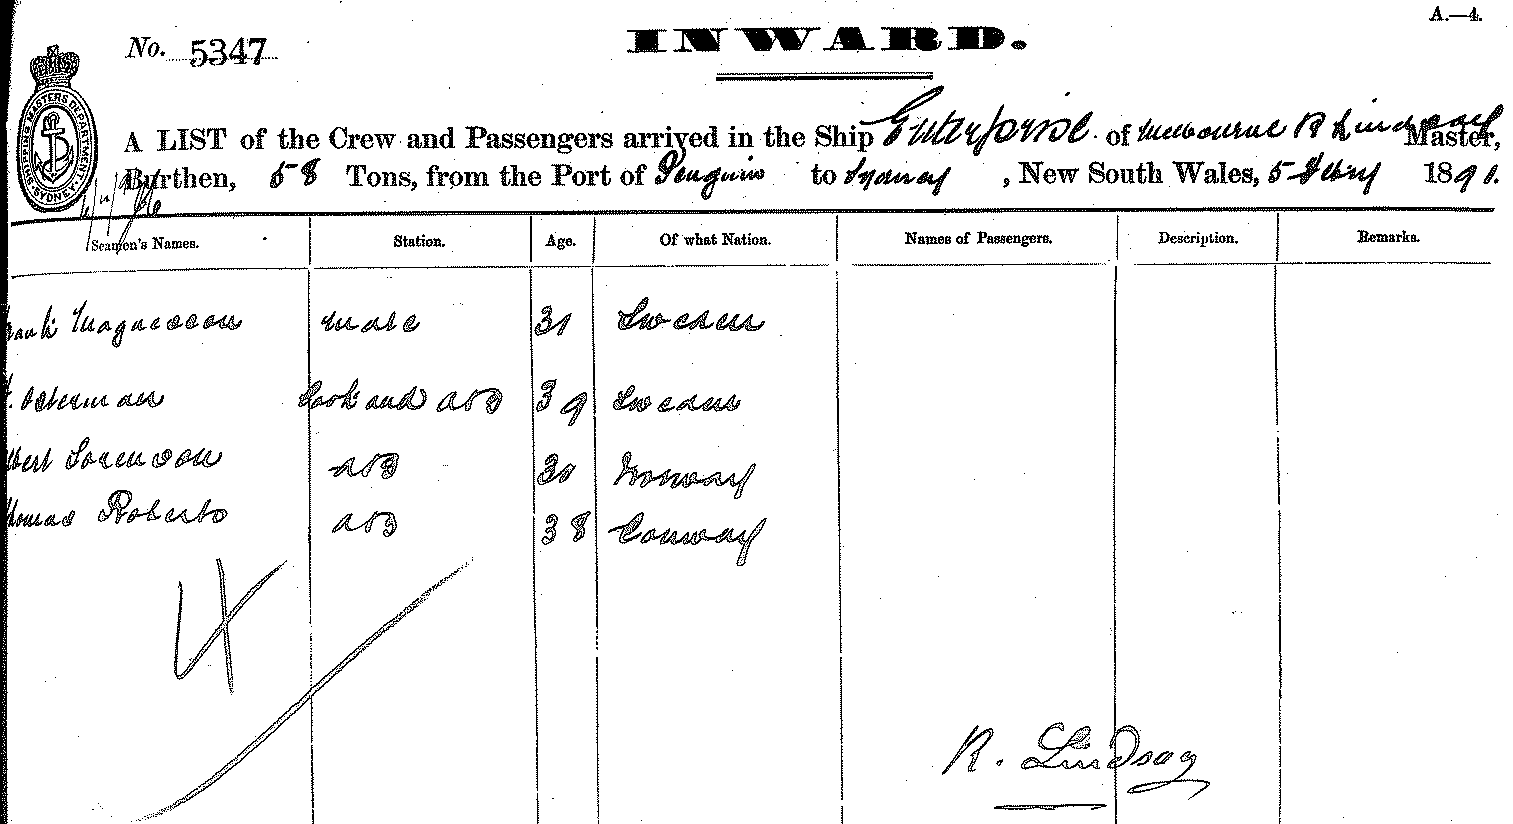 A.—4.
No. 5347
INWARD.
SHIPPING MASTERS DEPARTMENT SYDNEY
A LIST of the Crew and Passengers arrived in the Ship Enterprise of Melbourne R Lindsay Master,
Burthen, 58 Tons, from the Port of Penguin to Sydney, New South Wales, 5 Feby 1890.
Seamen's Names. Station. Age. Of what Nation. Names of Passengers. Description. Remarks.
Magnesson mate 31 Sweden
Osterman Cook and AB 39 Sweden
Sorenson AB 30 Norway
Roberts AB 38 Conway
4
R. Lindsay